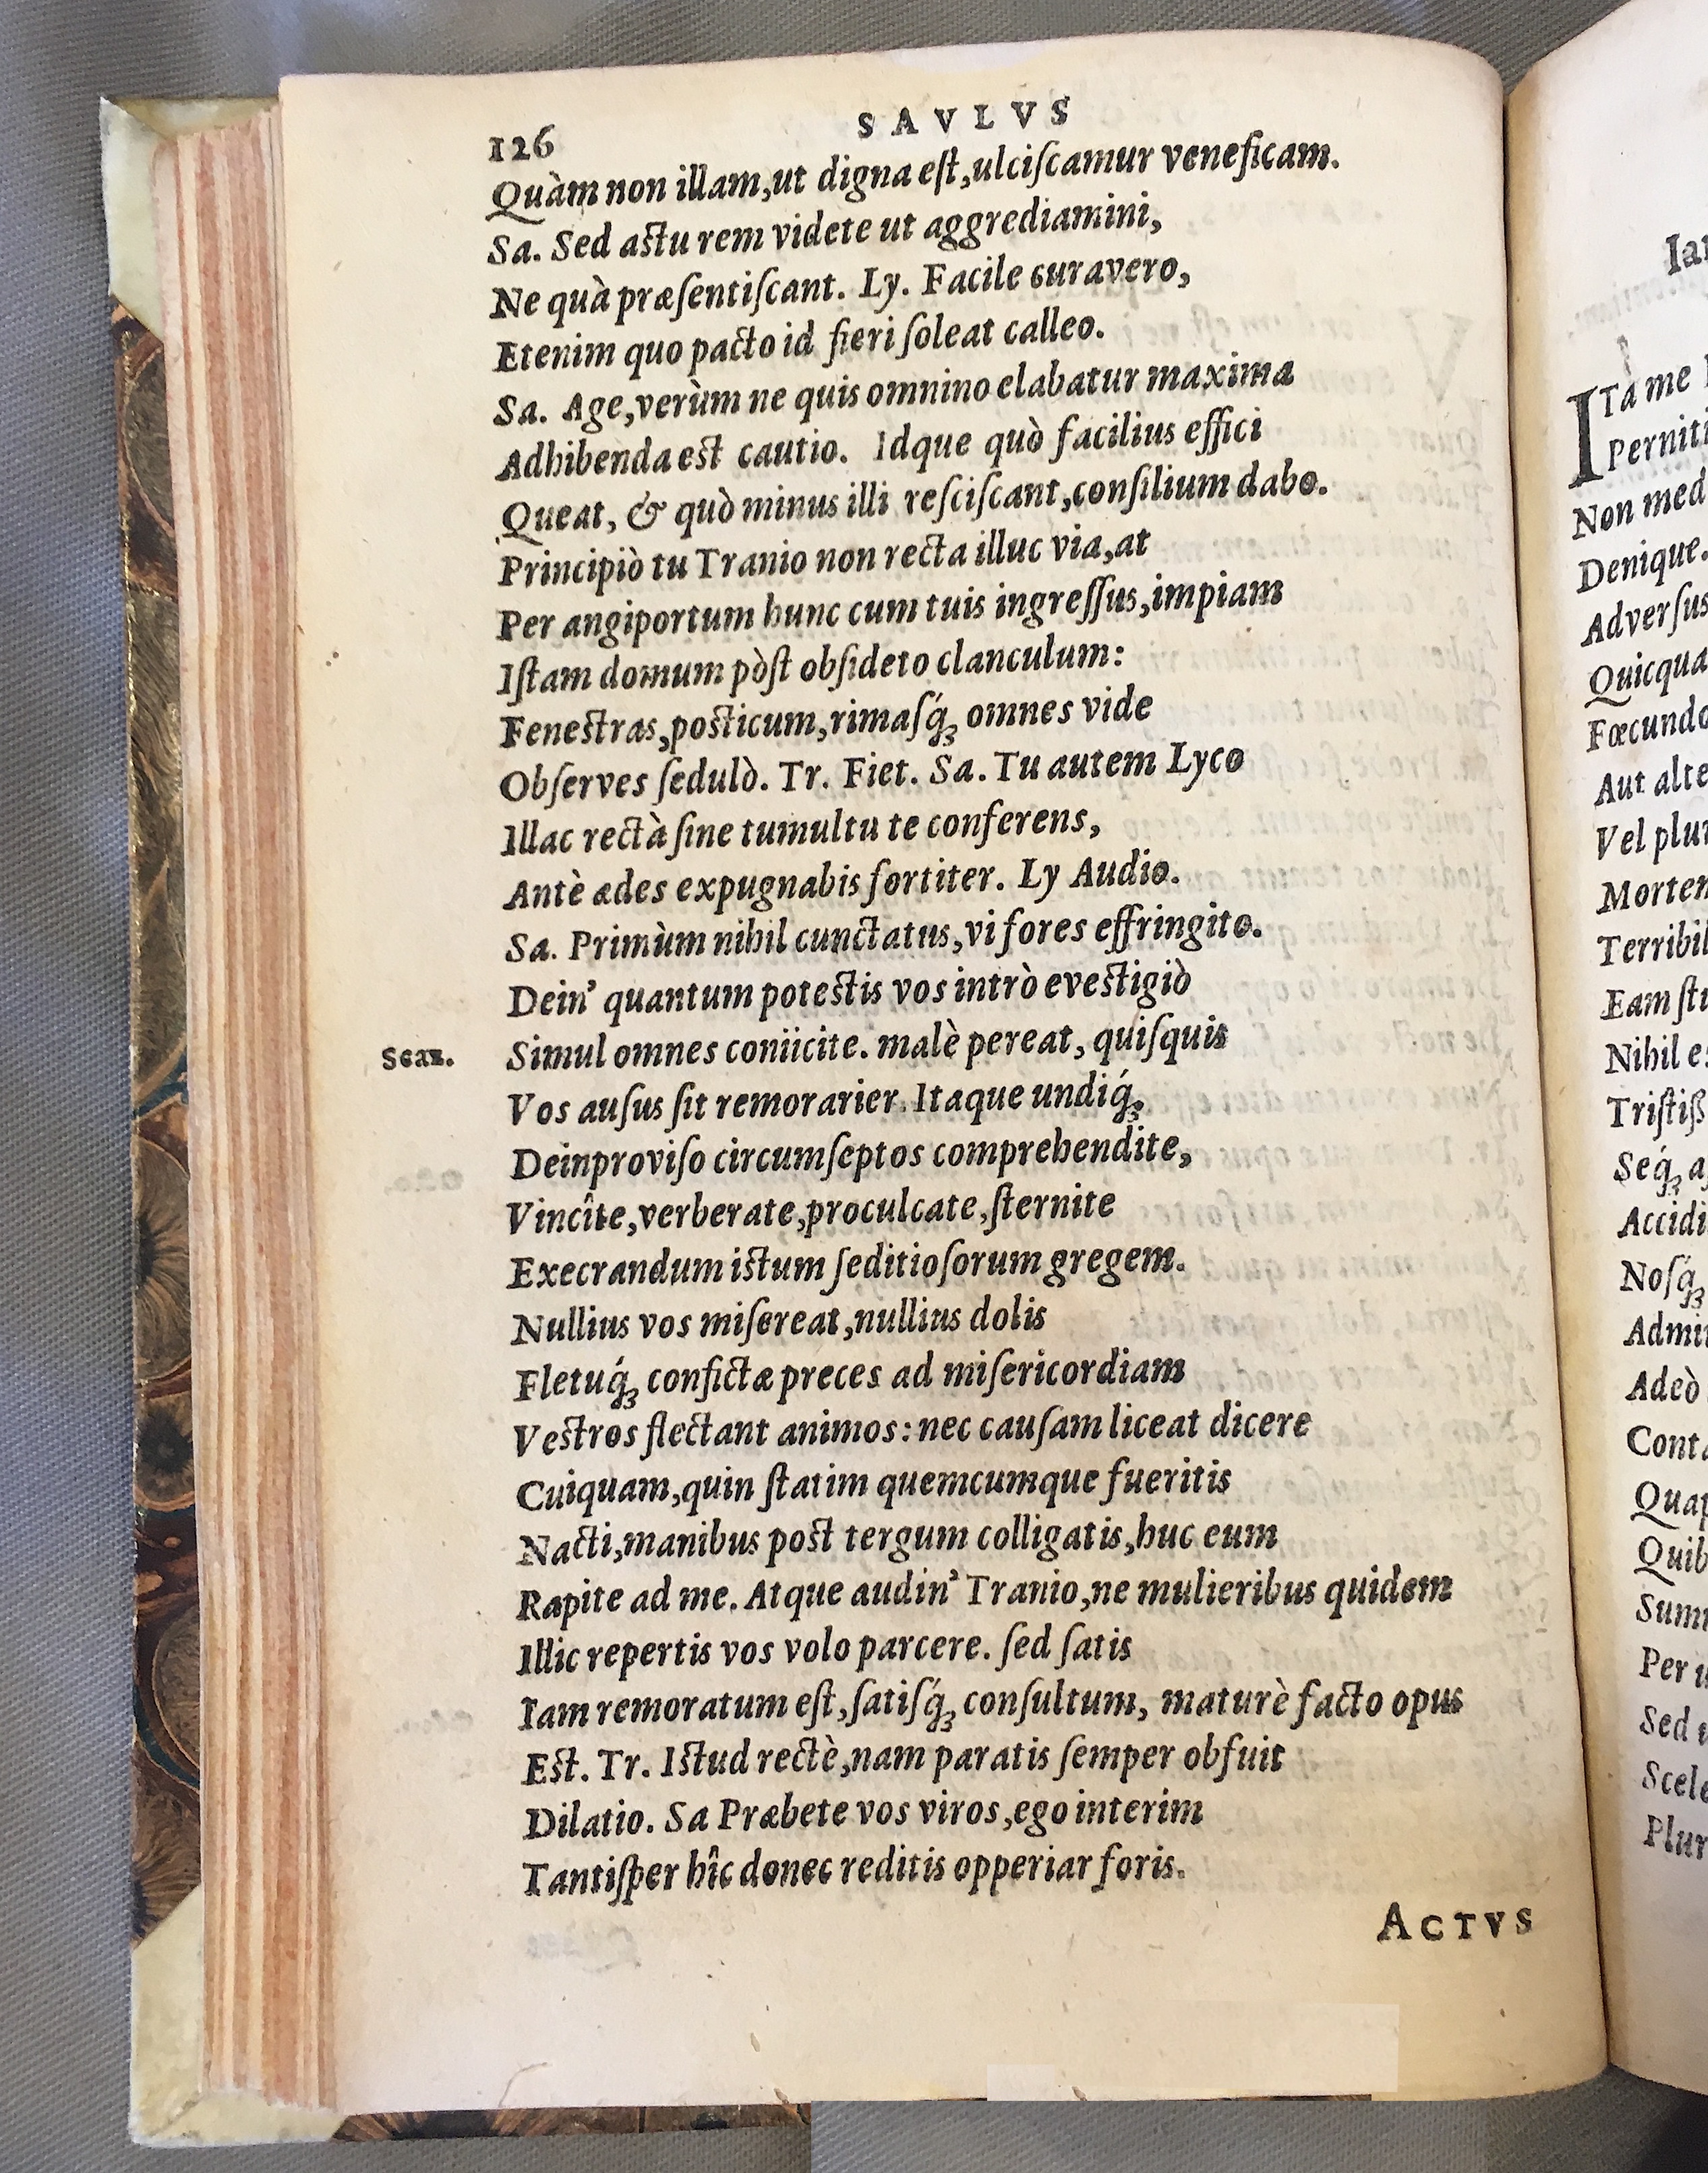 126
SAVLVS
Quàm non illam,ut digna eſt,ulciſcamur veneficam.
Sa. Sed aſtu rem videte ut aggrediamini,
Ne quà præſentiſcant. Ly. Facile curavero,
Etenim quo pacto id fieri ſoleat calleo.
Sa. Age,verùm ne quis omnino elabatur maxima
Adhibenda eſt cautio. Idque quò facilius effici
Queat, & quò minus illi reſciſcant,conſilium dabo.
Principiò tu Tranio non recta illuc via,at
Per angiportum hunc cum tuis ingreſſus,impiam
Iſtam domum pòſt obſideto clanculum:
Feneſtras,poſticum,rimaſq́ꝫ omnes vide
Obſerves ſedulò. Tr. Fiet. Sa. Tu autem Lyco
Illac rectà ſine tumultu te conferens,
Antè ædes expugnabis fortiter. Ly Audio.
Sa. Primùm nihil cunctatus,vi fores effringito.
Dein' quantum poteſtis vos intrò eveſtigiò
Scaz.
Simul omnes coniicite. malè pereat, quiſquis
Vos auſus ſit remorarier. Itaque undiq́ꝫ
Deinproviſo circumſeptos comprehendite,
Vincîte,verberate,proculcate,ſternite
Execrandum iſtum ſeditioſorum gregem.
Nullius vos miſereat,nullius dolis
Fletuq́ꝫ confictæ preces ad miſericordiam
Veſtros flectant animos: nec cauſam liceat dicere
Cuiquam,quin ſtatim quemcumque fueritis
Nacti,manibus poſt tergum colligatis,huc eum
Rapite ad me. Atque audin' Tranio,ne mulieribus quidem
Illic repertis vos volo parcere. ſed ſatis
Iam remoratum eſt,ſatiſq́ꝫ conſultum, maturè facto opus
Eſt. Tr. Iſtud rectè,nam paratis ſemper obfuit
Dilatio. Sa Præbete vos viros,ego interim
Tantiſper hîc donec reditis opperiar foris.
ACTVS
Ia
ITa me
Perniti
Non med
Denique.
Adverſus
Quicqua
Fœcundo
Aut alte
Vel plur
Mortem
Terribil
Eam ſtu
Nihil e
Triſtiß
Seq́ꝫ a
Accidi
Noſq́ꝫ
Admi
Adeò
Conta
Quap
Quib
Sum
Per
Sed
Scele
Plur